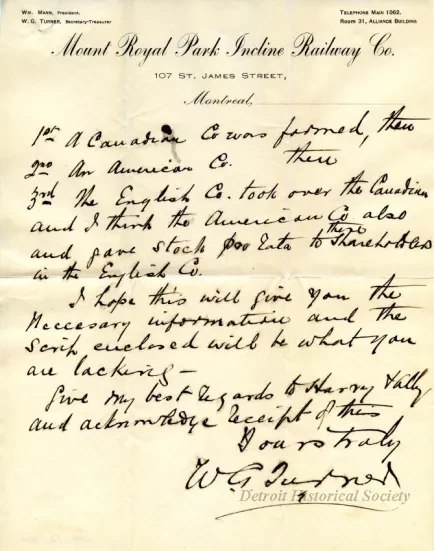 Wm. Mann, President.
W. G. Turner, Secretary-Treasurer
Telephone Main 1062.
Room 31, Alliance Building
Mount Royal Park Incline Railway Co.
107 St. James Street,
Montreal,
1st A Canadian Co was formed, then
2nd An American Co. then
3rd The English Co. took over the Canadian
and I think the American Co also
and gave stock pro rata to these Shareholders
in the English Co.
I hope this will give you the
Neccesary information and the
Scrip enclosed will be what you
are lacking —
Give my best regards to Harry &
and acknowledge receipt of this
Yours truly
W. G. Turner
Detroit Historical Society